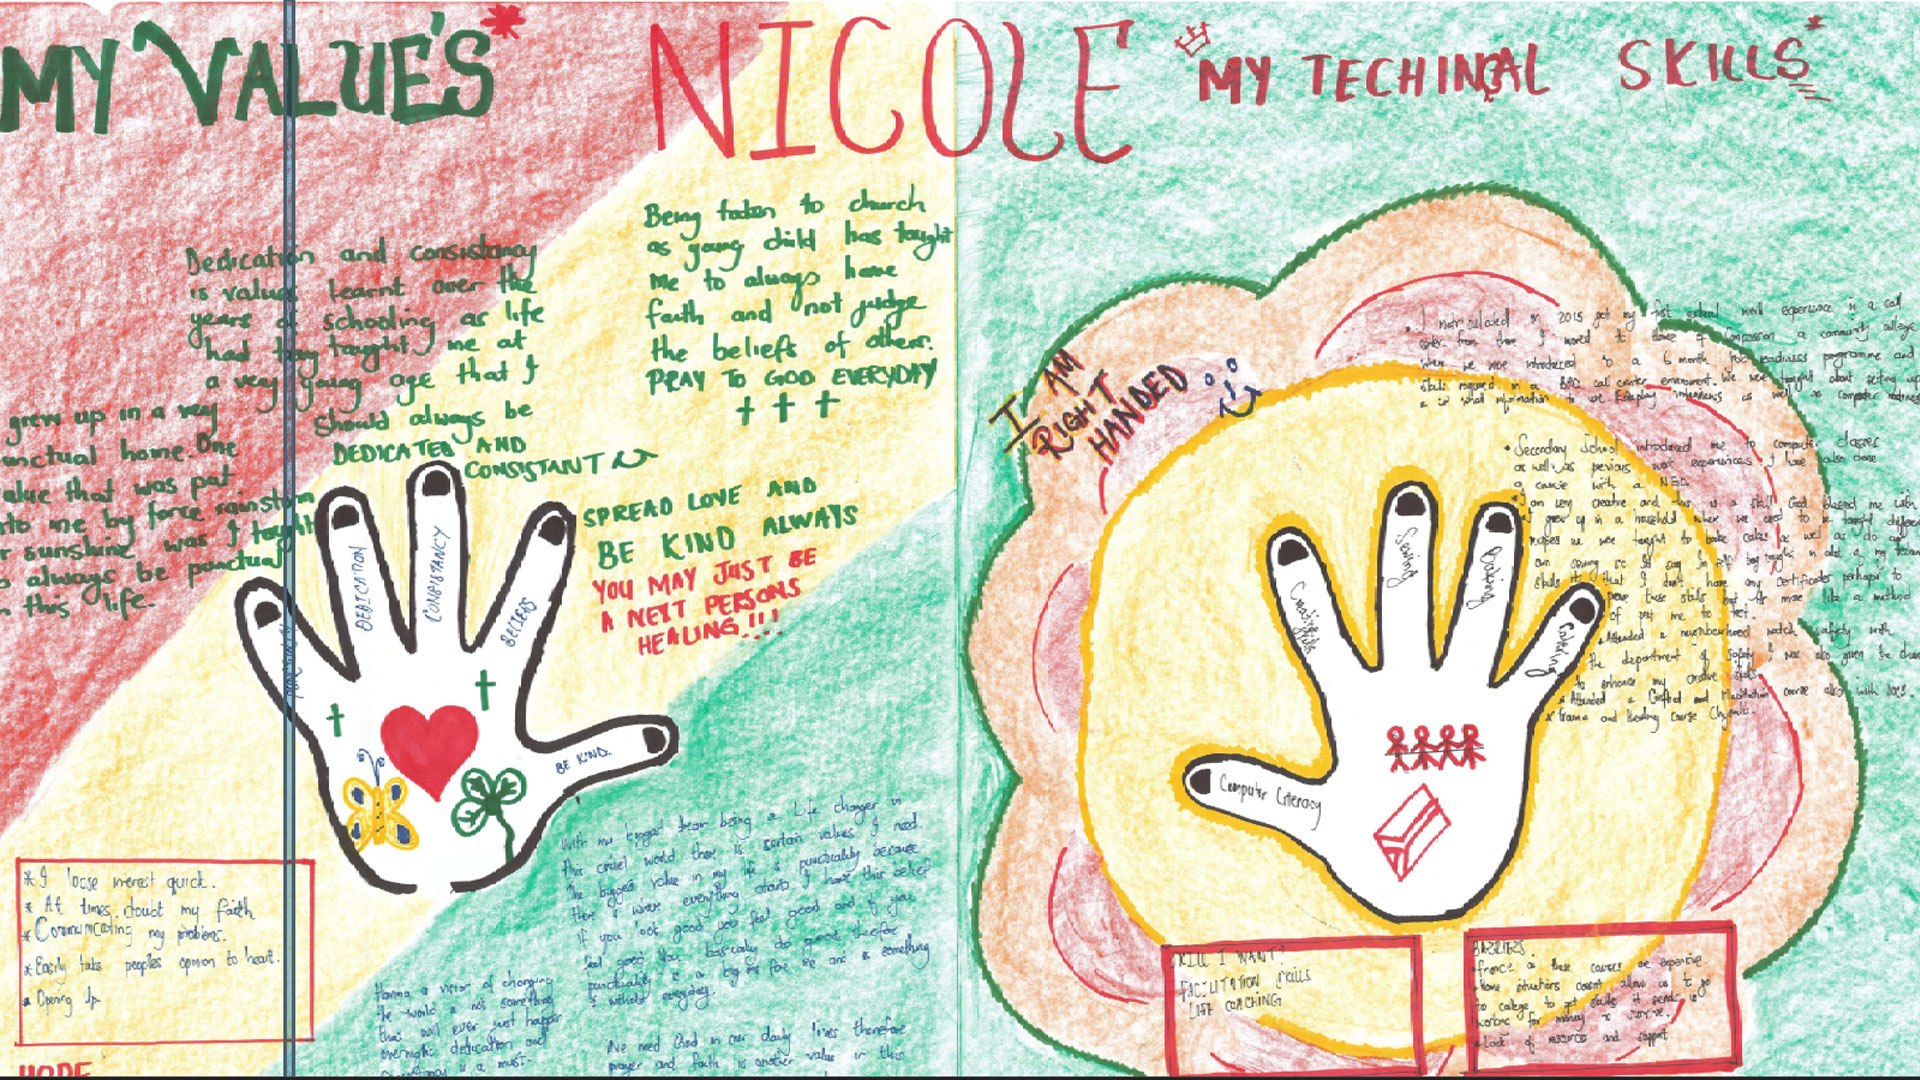 MY VALUE'S
NICOLE
MY TECHINCAL SKILLS
Dedication and consistancy
is values learnt over the
years of schooling as life
had taught me at
a very young age that I
should always be
DEDICATED AND
CONSISTANT
Being taken to church
as young child has taught
me to always have
faith and not judge
the beliefs of others.
PRAY TO GOD EVERYDAY
grew up in a very
home. One
that was put
to me by force rainstorm
sunshine was I taught
always be punctual
this life.
SPREAD LOVE AND
BE KIND ALWAYS
YOU MAY JUST BE
A NEXT PERSONS
HEALING!!!!
DEDICATION
CONSISTANCY
BELIEFS
BE KIND.
* I loose interest quick.
* At times doubt my faith
* Communicating my problems.
* Easily take peoples opinion to heart.
* Opening Up
HOPE
With my biggest being a Life changer in
this cruel world there is certain values I need.
The biggest value in my life is punctuality because
everything starts I have this belief
if you look good you feel good and if you
feel good You basically do good therefore
punctuality is a big for me and is something
I withold everyday.
Having a vision of changing
the world is not something
that will ever just happen
overnight dedication and
consistancy is a must.
We need God in our daily lives therefore
prayer and faith is another value in this
I AM
RIGHT
HANDED
I matriculated in 2015 got my first actual work experience in a call
center from there I moved to Home of Compassion a community college
where we were introduced to a 6 month job readiness programme and
skills required in a BPO call center enviroment. We were taught about setting up
a cv what information to use Roleplay interviews as well as computer
• Secondary School introduced me to computer classes
as well as pervious work experiences I have also done
a course with a NGO.
I am very creative and this is a skill God blessed me with
I grew up in a household where we used to be taught
recipes we were taught to bake cakes as well as do our
own sewing
skills that I don't have my certificates perhaps to
prove these skills but
of put me to test.
Attended a neighbourhood watch safety with
the department of Safety I was also given the
to enhance my creative skills
Attended a and Mediation course also with
Creative Skills
Sewing
Baking
Catering
Computer Literacy
SKILL I WANT?
FACILITATION SKILLS
LIFE COACHING
• Finance as these courses are expensive
• Home situations doesnt allow us to go
to college to get skills it sends us
working for money to survive.
• Lack of resources and support